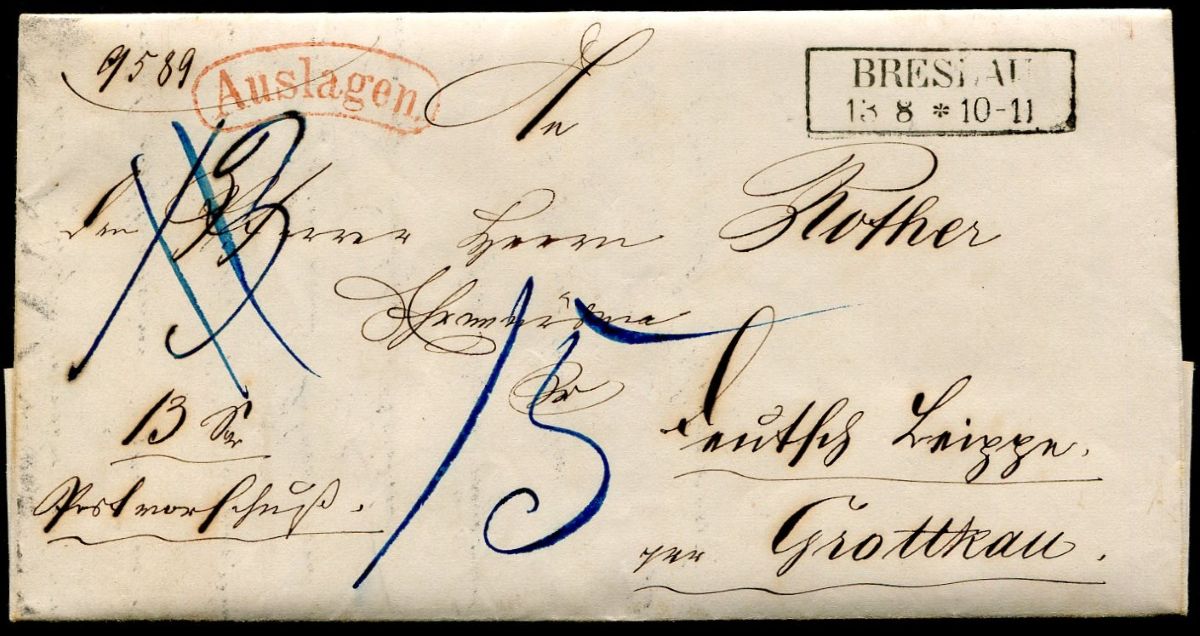 9589
Auslagen.
BRESLAU
13 8 * 10-11
An
den Pfarrer Herrn Rother
Ehrwürden
13
15
13 Sgr
Postvorschuß.
Deutsch Leippe.
per Grottkau.